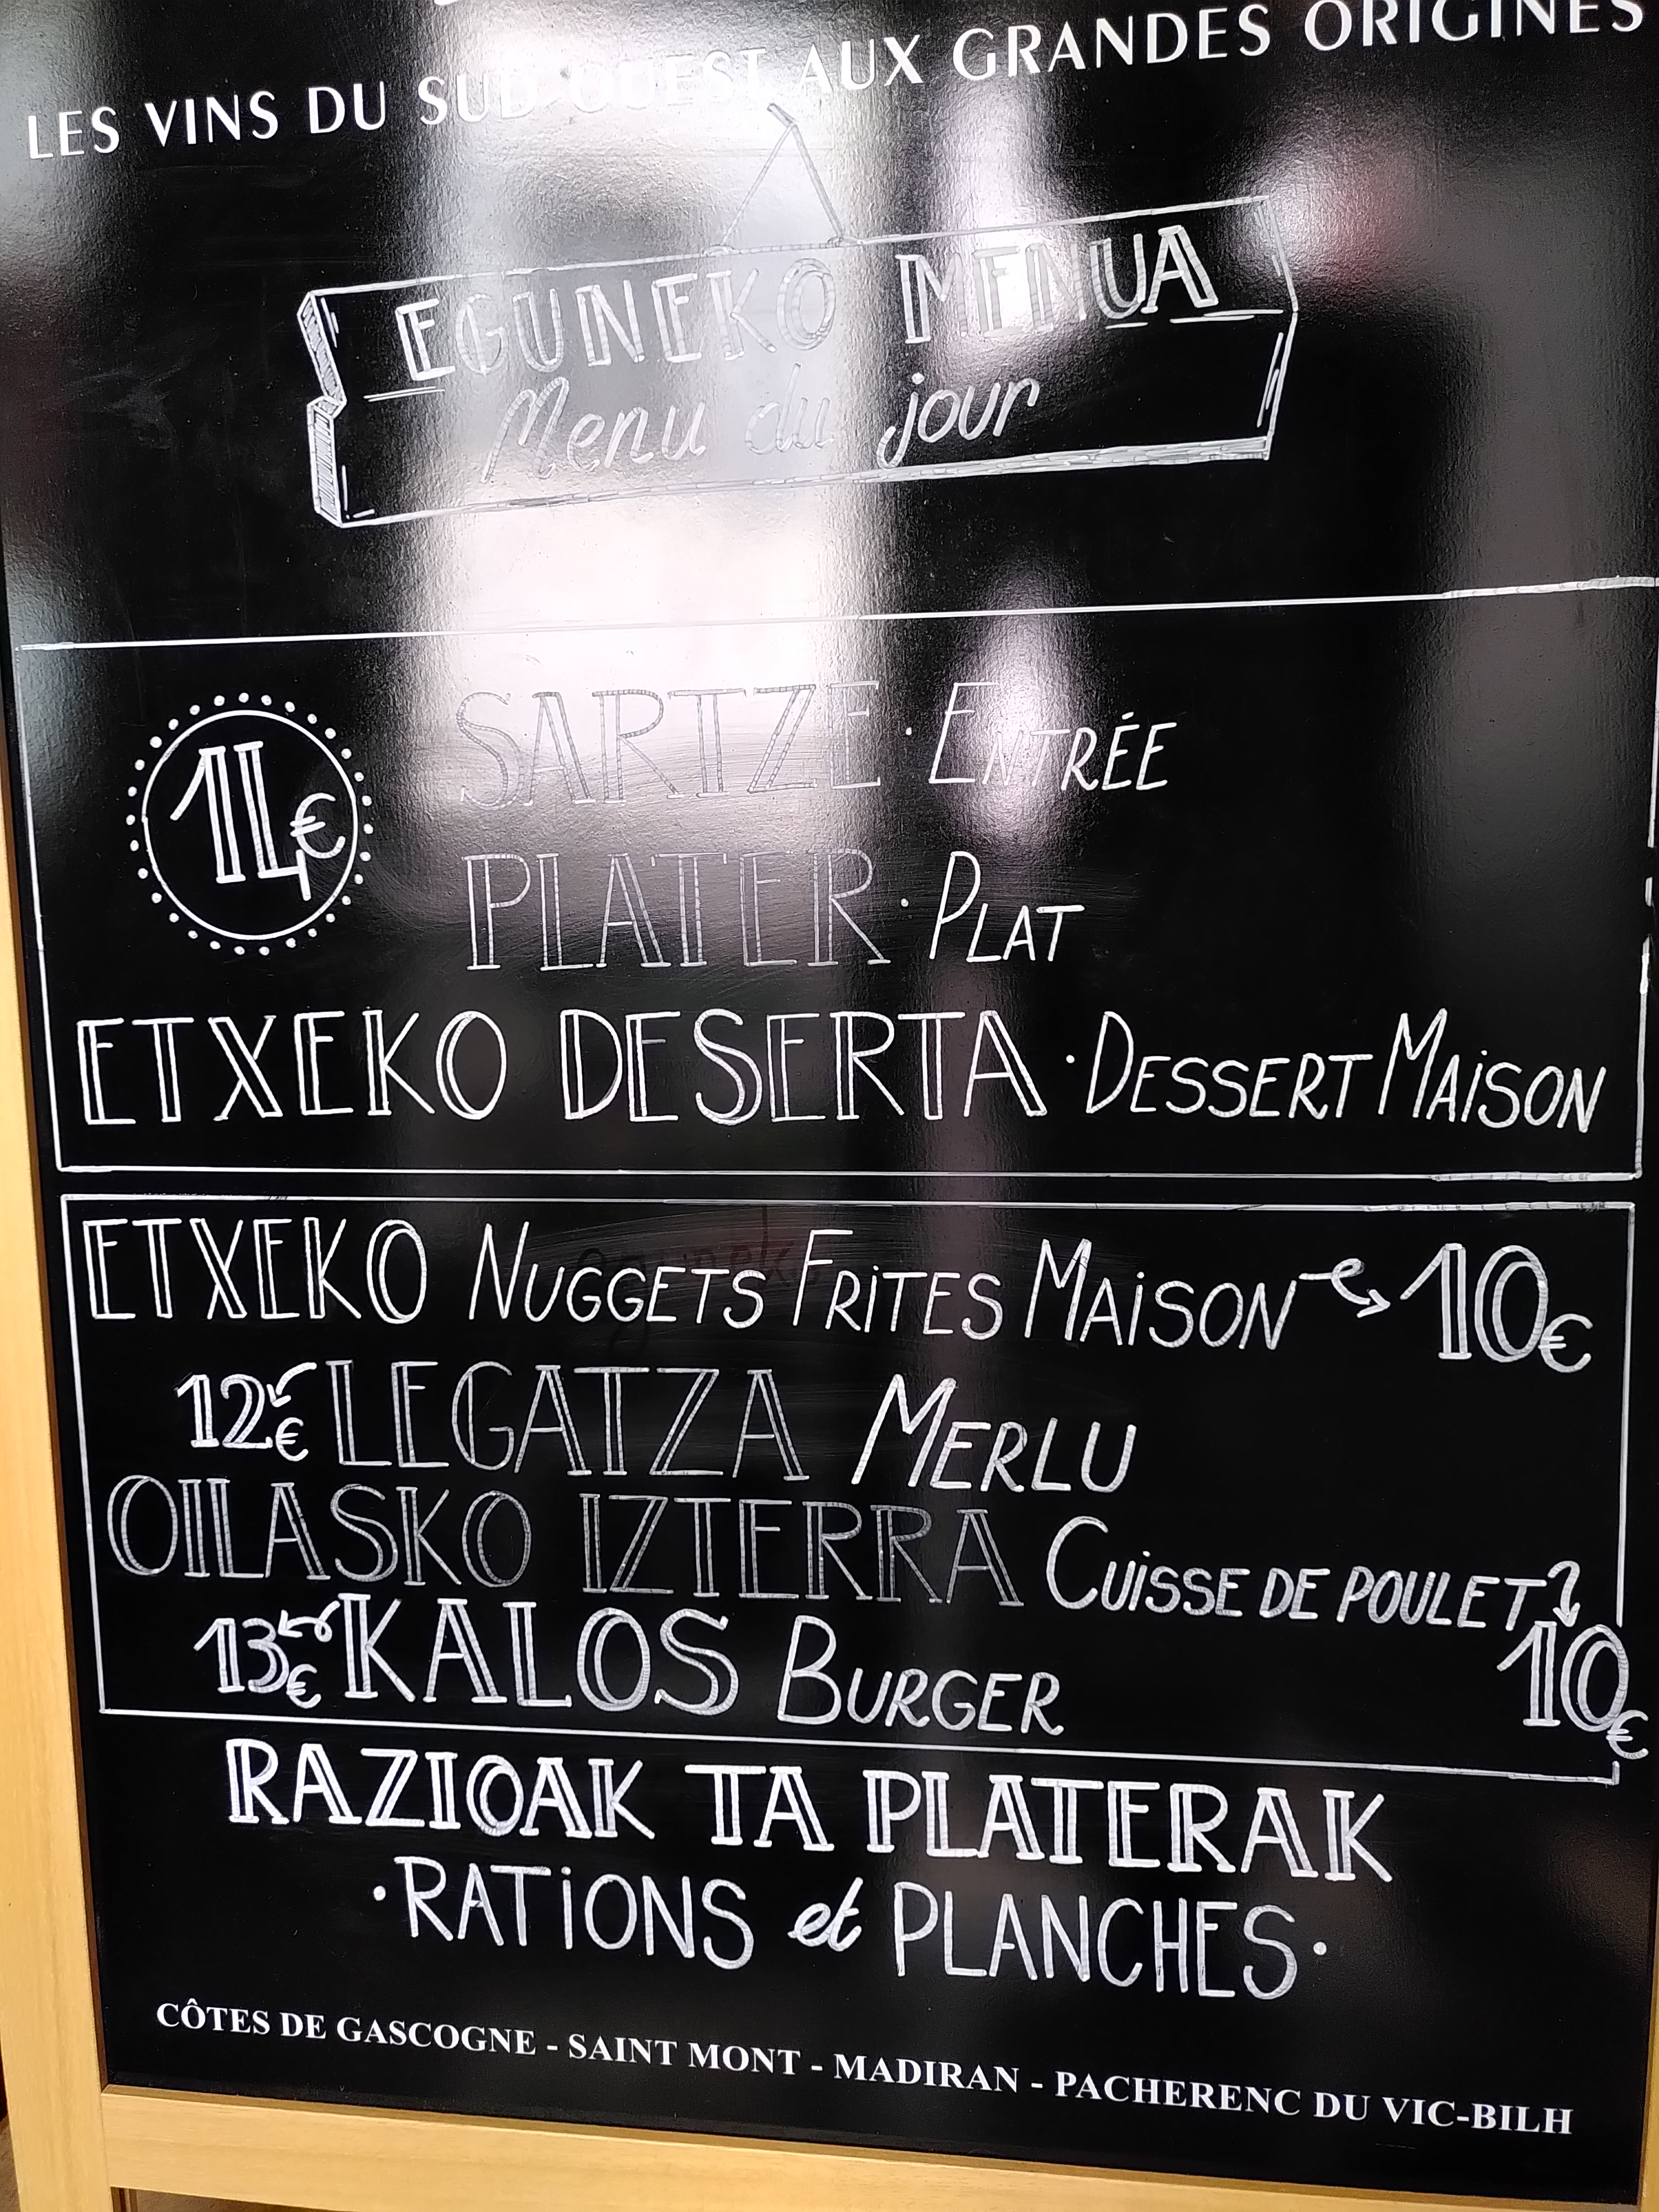 LES VINS DU SUD-OUEST AUX GRANDES ORIGINES
EGUNEKO MENUA
Menu du jour
14€
SARTZE · ENTRÉE
PLATER · PLAT
ETXEKO DESERTA · DESSERT MAISON
ETXEKO NUGGETS FRITES MAISON 10€
12€ LEGATZA MERLU
OILASKO IZTERRA CUISSE DE POULET
10€
13€ KALOS BURGER
RAZIOAK TA PLATERAK
· RATIONS et PLANCHES ·
CÔTES DE GASCOGNE - SAINT MONT - MADIRAN - PACHERENC DU VIC-BILH